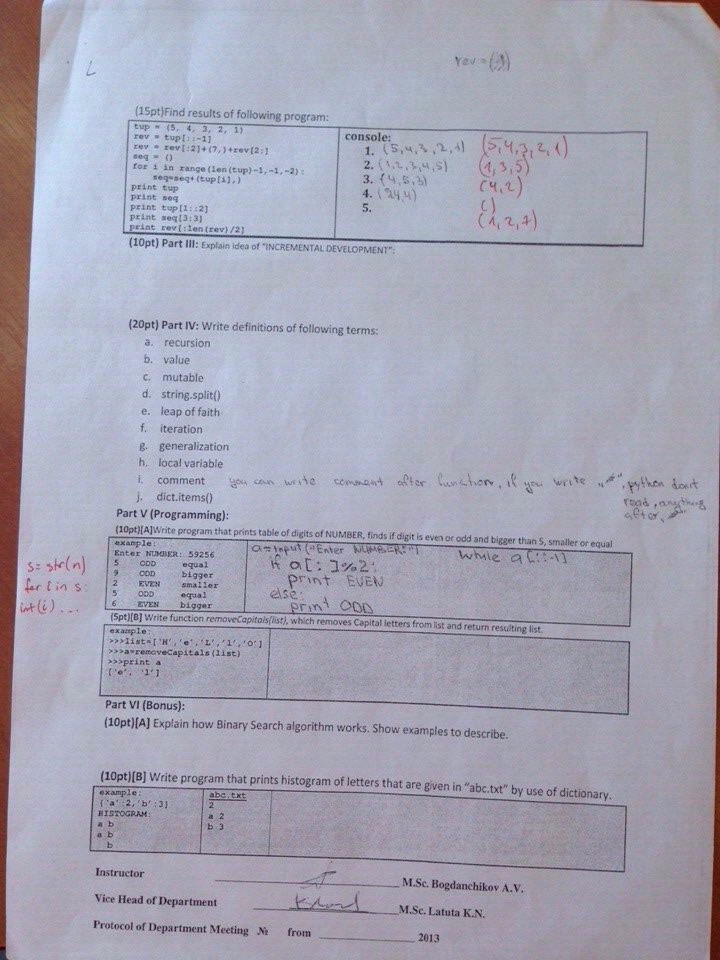 rev =
(15pt)Find results of following program:
tup = (5, 4, 3, 2, 1)
rev = tup[::-1]
rev = rev[:2]+(7,)+rev[2:]
seq = ()
for i in range(len(tup)-1,-1,-2):
seq=seq+(tup[i],)
print tup
print seq
print tup[1::2]
print seq[3:3]
print rev[:len(rev)/2]
console:
1. (5,4,3,2,1) (5,4,3,2,1)
2. (1,2,3,4,5) (1,3,5)
3. (4,5,3) (4,2)
4. ()
5. (1,2,7)
(10pt) Part III: Explain idea of "INCREMENTAL DEVELOPMENT":
(20pt) Part IV: Write definitions of following terms:
a. recursion
b. value
c. mutable
d. string.split()
e. leap of faith
f. iteration
g. generalization
h. local variable
i. comment you can write comment after function, if you write "#", python don't
read, anything
after, "#"
j. dict.items()
Part V (Programming):
(10pt)[A]Write program that prints table of digits of NUMBER, finds if digit is even or odd and bigger than 5, smaller or equal
example:
Enter NUMBER: 59256
5 ODD equal
9 ODD bigger
2 EVEN smaller
5 ODD equal
6 EVEN bigger
a=input("Enter NUMBER:") while a[::-1]
if a[:]%2:
print EVEN
else:
print ODD
s=str(n)
for i in s:
int(i)...
(5pt)[B] Write function removeCapitals(list), which removes Capital letters from list and return resulting list.
example:
>>>list=['H','e','L','l','O']
>>>a=removeCapitals(list)
>>>print a
['e', 'l']
Part VI (Bonus):
(10pt)[A] Explain how Binary Search algorithm works. Show examples to describe.
(10pt)[B] Write program that prints histogram of letters that are given in "abc.txt" by use of dictionary.
example:
{'a':2,'b':3}
HISTOGRAM:
a b
a b
b
abc.txt
2
a 2
b 3
Instructor M.Sc. Bogdanchikov A.V.
Vice Head of Department M.Sc. Latuta K.N.
Protocol of Department Meeting № from 2013